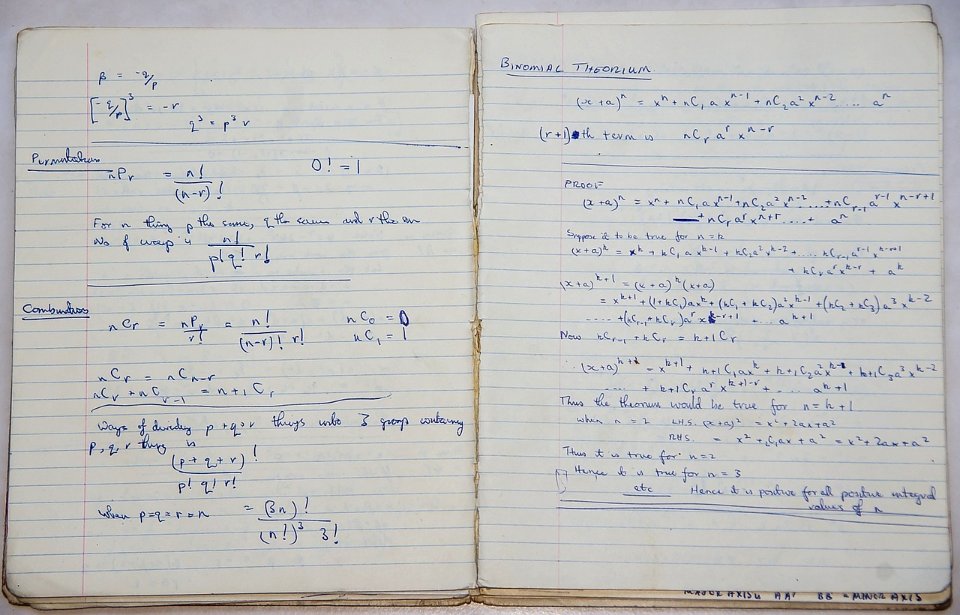 β = -q/p
[-q/p]³ = -r
q³ = p³ r
Permutations
nPr = n!/(n-r)! 0! = 1
For n things p the same, q the same and r the same
No of ways is n!/p! q! r!
Combinations
nCr = nPr/r! = n!/(n-r)! r! nC₀ = 0
nC₁ = 1
nCr = nCn-r
nCr + nCr-1 = n+1Cr
Ways of dividing p+q+r things into 3 groups containing
p, q, r things is
(p+q+r)!/p! q! r!
when p=q=r=n = (3n)!/(n!)³ 3!
BINOMIAL THEORIUM
(x+a)ⁿ = xⁿ + nC₁ a xⁿ⁻¹ + nC₂ a² xⁿ⁻² ... aⁿ
(r+1)th term is nCr aʳ xⁿ⁻ʳ
PROOF
(x+a)ⁿ = xⁿ + nC₁ a xⁿ⁻¹ + nC₂ a² xⁿ⁻² ..... + nCr-1 aʳ⁻¹ xⁿ⁻ʳ⁺¹
+ nCr aʳ xⁿ⁺ʳ .... + aⁿ
Suppose it to be true for n=k
(x+a)ᵏ = xᵏ + kC₁ a xᵏ⁻¹ + kC₂ a² xᵏ⁻² + ..... kCr-1 aʳ⁻¹ xᵏ⁻ʳ⁺¹
+ kCr aʳ xᵏ⁻ʳ + aᵏ
(x+a)ᵏ⁺¹ = (x+a)ᵏ (x+a)
= xᵏ⁺¹ + (1+kC₁)axᵏ + (kC₁ + kC₂)a²xᵏ⁻¹ + (kC₂ + kC₃)a³xᵏ⁻²
..... + (kCr-1 + kCr)aʳ xᵏ⁻ʳ⁺¹ + ... aᵏ⁺¹
Now kCr-1 + kCr = k+1Cr
∴ (x+a)ᵏ⁺¹ = xᵏ⁺¹ + k+1C₁axᵏ + k+1C₂a²xᵏ⁻¹ + k+1C₃a³xᵏ⁻²
..... + k+1Cr aʳ xᵏ⁺¹⁻ʳ + ..... aᵏ⁺¹
Thus the theorium would be true for n = k+1
when n = 2 L.H.S. (x+a)² = x² + 2ax + a²
R.H.S. = x² + ₂C₁ax + a² = x² + 2ax + a²
Thus it is true for n=2
Hence it is true for n = 3
etc Hence it is positive for all positive integral
values of n
MAJOR AXIS AA' BB - MINOR AXIS